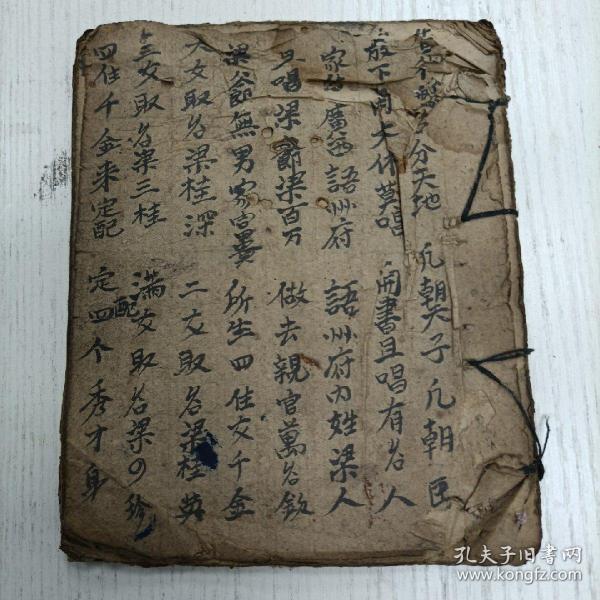 分天地 凡朝天子凡朝臣
放下閑文休莫唱 開書且唱有名人
家住廣西語州府 語州府内姓梁人
只唱梁爺梁百万 做去親官萬名敘
梁爺無男家富貴 所生四住女千金
大女取名梁桂深 二女取名梁桂英
三女取名梁三桂 滿女取名梁四珍
四住千金来定配 定配四个秀才身
孔夫子旧书网
www.kongfz.com